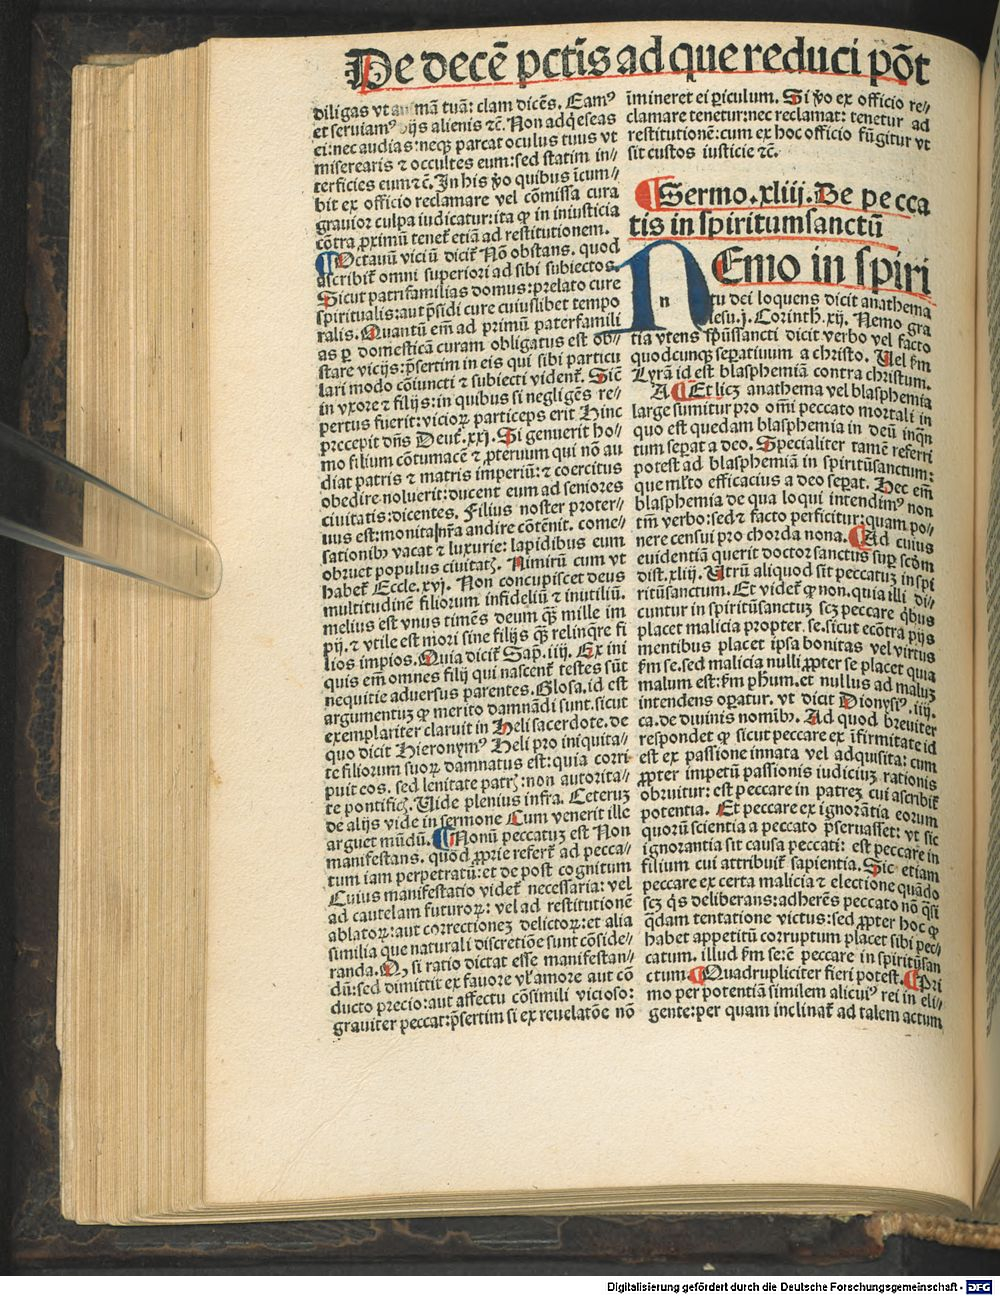 De decē pctīs ad que reduci pōt
diligas vt animā tuā: clam dicēs. Eamꝰ
et seruiamꝰ dijs alienis ⁊c̄. Non adq̇eseas
ei: nec audias: neqꝫ parcat oculus tuus vt
miserearis ⁊ occultes eum: sed statim in//
terficies eum ⁊c̄. In his v̊o quibus īcum//
bit ex officio reclamare vel cōmissa cura
grauior culpa iudicatur: ita ꝙ in iniusticia
cōtra ꝓximū teneť etiā ad restitutionem.
¶ Octauū viciū diciť Nō obstans. quod
ascribiť omni superiori ad sibi subiectos.
Sicut patrifamilias domus: prelato cure
spiritualis: aut p̄sidi cure cuiuslibet tempo
ralis. Quantū em̄ ad primū paterfamili
as ꝑ domesticā curam obligatus est ob//
stare vicijs: p̄sertim in eis qui sibi particu
lari modo cōiuncti ⁊ subiecti videnť. Sic̄
in vxore ⁊ filijs: in quibus si negligēs re//
pertus fuerit: vicioꝝ particeps erit Hinc
precepit dn̄s Deuť. xxj. Si genuerit ho//
mo filium cōtumacē ⁊ ꝓteruum qui nō au
diat patris ⁊ matris imperiū: ⁊ coercitus
obedire noluerit: ducent eum ad seniores
ciuitatis: dicentes. Filius noster proter//
uus est: monita nr̄a andire cōtēnit. come//
sationibꝫ vacat ⁊ luxurie: lapidibus eum
obruet populus ciuitatꝭ. Nimirū cum vt
habeť Eccle. xvj. Non concupiscet deus
multitudinē filiorum infideliū ⁊ inutiliū.
melius est vnus timēs deum q̄ꝫ mille im
pij. ⁊ vtile est mori sine filijs q̄ꝫ relinq̇re fi
lios impios. Quia diciť Sap̄. iiij. Ex ini
quis em̄ omnes filij qui nascenť testes sūt
nequitie aduersus parentes. Glosa. id est
argumentuꝫ ꝙ merito damnādi sunt. sicut
exemplariter claruit in Heli sacerdote. de
quo dicit Hieronymꝰ Heli pro iniquita//
te filiorum suoꝝ damnatus est: quia corri
puit eos. sed lenitate patrꝭ: non autorita//
te pontificꝭ. Vide plenius infra. Ceteruꝫ
de alijs vide in sermone Cum venerit ille
arguet mūdū. ¶ Nonū peccatuꝫ est Non
manifestans. quod ꝓprie referť ad pecca//
tum iam perpetratū: et de post cognitum
Cuius manifestatio videť necessaria: vel
ad cautelam futuroꝝ: vel ad restitutionē
ablatoꝝ: aut correctioneꝫ delictoꝝ: et alia
similia que naturali discretiōe sunt cōside//
randa. Q, si ratio dictat esse manifestan//
dū: sed dimittit ex fauore vl̓ amore aut cō
ducto precio: aut affectu cōsimili vicioso:
grauiter peccat: p̄sertim si ex reuelatōe nō
īmineret ei ꝑiculum. Si v̊o ex officio re//
clamare tenetur: nec reclamat: tenetur ad
restitutionē: cum ex hoc officio fūgitur vt
sit custos iusticie ⁊c̄.
¶ Sermo. xliij. De pecca
tis in spiritumsanctū
n
NEmo in spiri
tu dei loquens dicit anathema
iesu. j. Corinth. xij. Nemo gra
tia vtens sp̄ūssancti dicit verbo vel facto
quodcunqꝫ sep̄atiuum a christo. Vel ẜm
Lyrā id est blasphemiā contra christum.
A ¶ Et licꝫ anathema vel blasphemia
large sumitur pro om̄i peccato mortali in
quo est quedam blasphemia in deū inq̄n
tum sep̄at a deo. Specialiter tamē referri
potest ad blasphemiā in spiritūsanctum:
que ml̓to efficacius a deo sep̄at. Hec em̄
blasphemia de qua loqui intendimꝰ non
tm̄ verbo: sed ⁊ facto perficitur: quam po//
nere censui pro chorda nona. ¶ Ad cuius
euidentiā querit doctor sanctus suꝑ scd̄m
dist. xliij. Vtrū aliquod sit peccatuꝫ in spi
ritūsanctum. Et videť ꝙ non. quia illi di//
cuntur in spiritūsanctuꝫ scꝫ peccare q̇bus
placet malicia propter se. sicut ecōtra pijs
mentibus placet ipsa bonitas vel virtus
ẜm se. sed malicia nulli ꝓpter se placet quia
malum est: ẜm ph̄um. et nullus ad maluꝫ
intendens oꝑatur. vt dicit Dionysiꝰ. iiij.
ca. de diuinis nomibꝫ. Ad quod breuiter
respondet ꝙ sicut peccare ex īfirmitate id
est ex passione innata vel adquisita: cum
ꝓpter impetū passionis iudiciuꝫ rationis
obruitur: est peccare in patreꝫ cui ascribiť
potentia. Et peccare ex ignorātia eorum
quorū scientia a peccato p̄seruasset: vt sic
ignorantia sit causa peccati: est peccare in
filium cui attribuiť sapientia. Sic etiam
peccare ex certa malicia ⁊ electione quādo
scꝫ q̇s deliberans: adherēs peccato nō q̄si
q̄dam tentatione victus: sed ꝓpter hoc ꝙ
habet appetitū corruptum placet sibi pec//
catum. illud ẜm se: ē peccare in spiritūsan
ctum. ¶ Quadrupliciter fieri potest. ¶ Pri
mo per potentiā similem alicuiꝰ rei in eli//
gente: per quam inclinať ad talem actum
Digitalisierung gefördert durch die Deutsche Forschungsgemeinschaft - DFG